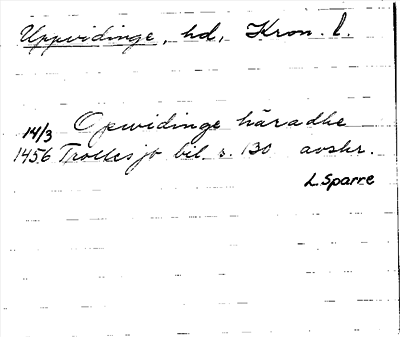 Uppvidinge, hd, Kron. l.
14/3 Opwidinge häradhe
1456 Trollesjö bil. s. 130 avskr.
L. Sparre